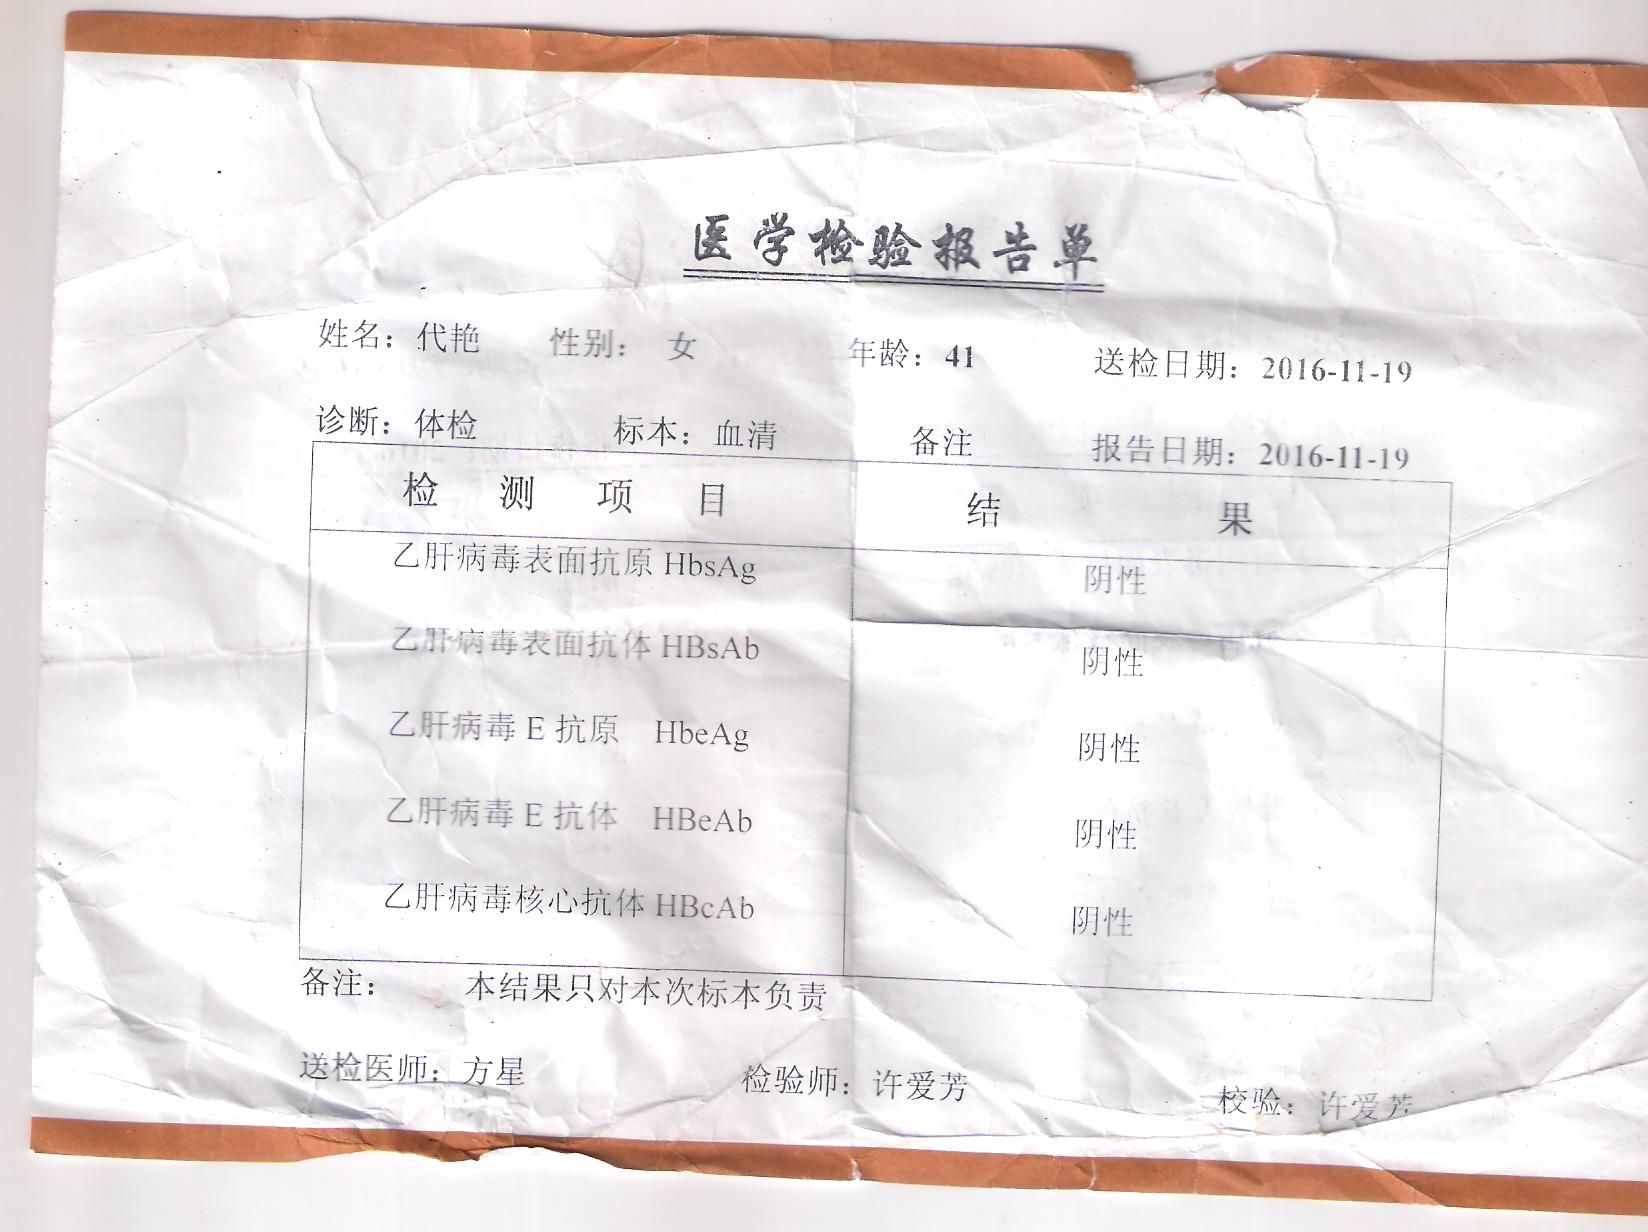 医学检验报告单
姓名：代艳 性别： 女 年龄：41 送检日期：2016-11-19
诊断：体检 标本：血清 备注 报告日期：2016-11-19
检 测 项 目 结 果
乙肝病毒表面抗原 HbsAg 阴性
乙肝病毒表面抗体 HBsAb 阴性
乙肝病毒 E 抗原 HbeAg 阴性
乙肝病毒 E 抗体 HBeAb 阴性
乙肝病毒核心抗体 HBcAb 阴性
备注： 本结果只对本次标本负责
送检医师：方星 检验师：许爱芳 校验：许爱芳